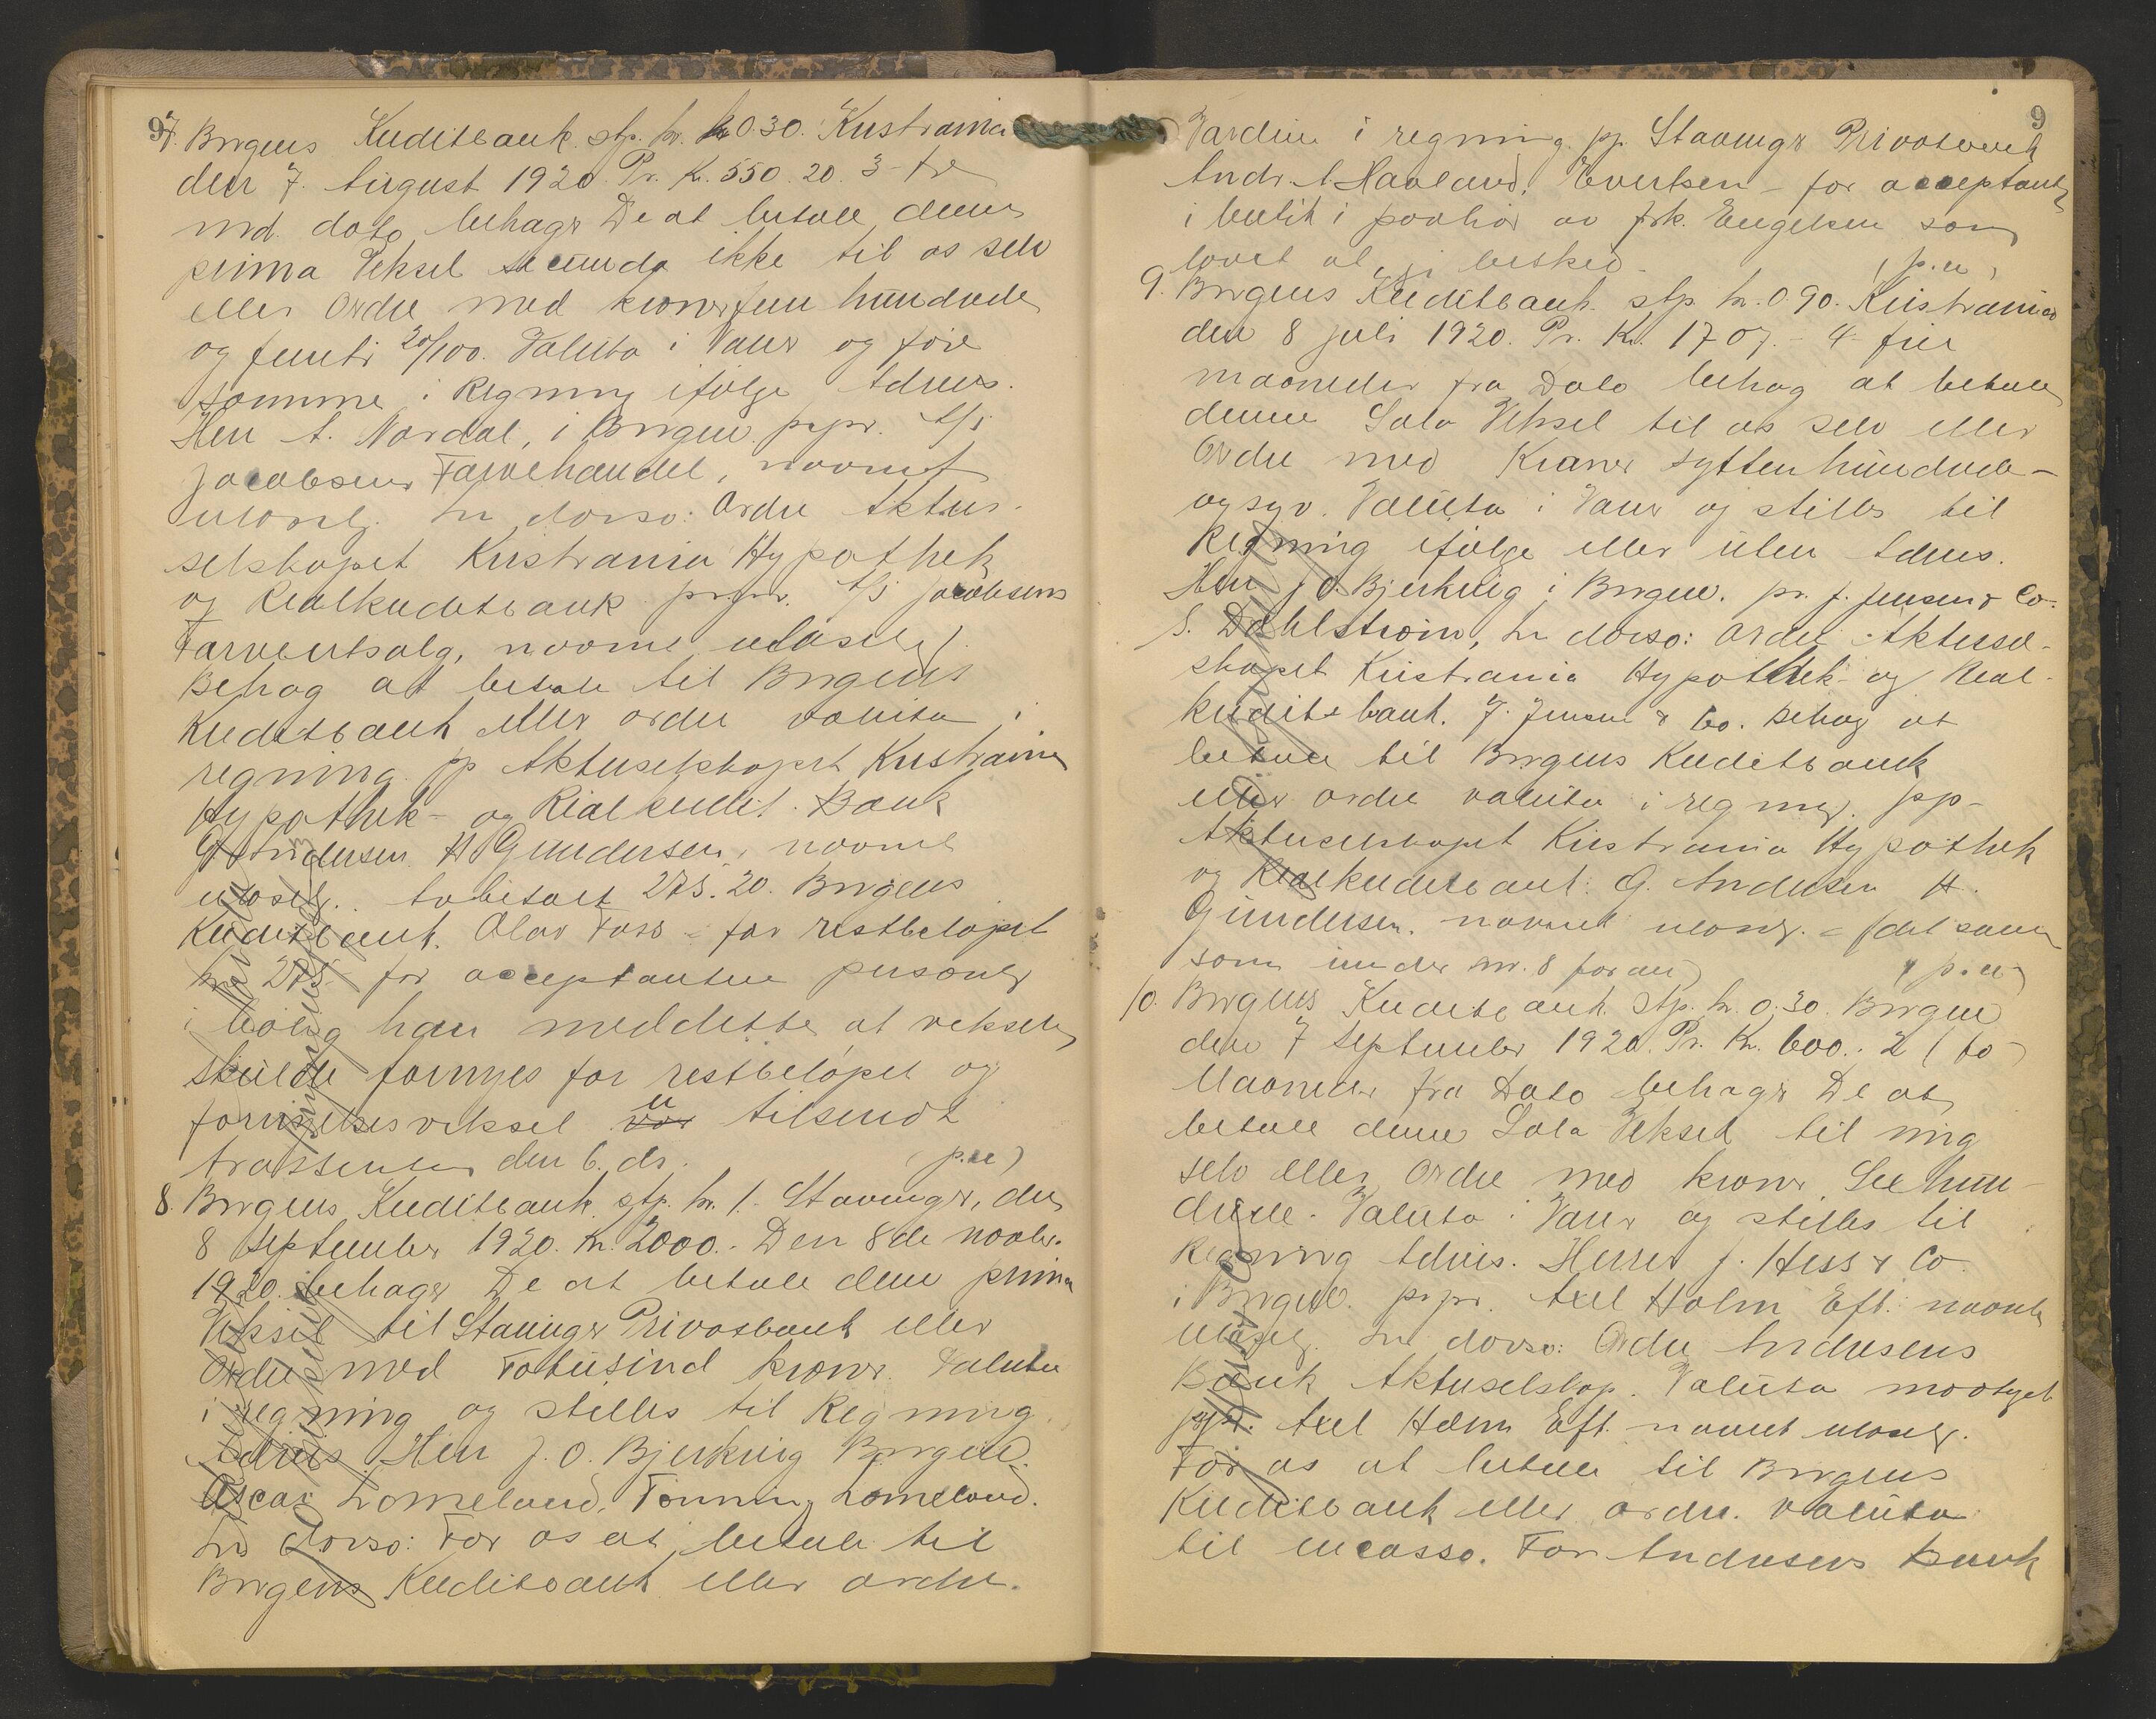 7. Bergens Kreditbank. stp. kr. 0.30. Kristiania
den 7. August 1920. Pr. Kr. 550.20. 3 - tre
md. dato behager De at betale denne
prima Veksel secunda ikke til os selv
eller Ordre med kroner fem hundrede
og femti 20/100. Valuta i Varer og føre
somme i Regning ifølge Advis.
Herr A. Nordal, i Bergen. pr. pr. A/S
Jacobsens Farvehandel, navnet
ulæselig. In dorso: Ordre Aktie-
selskapet Kristiania Hypothek
og Realkreditbank pr. pr. A/S Jacobsens
Farveutsalg, navnet ulæselig.
Behag at betale til Bergens
Kreditbank eller ordre valuta i
regning. pp Aktieselskapet Kristiania
Hypothek- og Realkredit. Bank
G Andersen H Gundersen, navnet
ulæselig. Avbetalt 275.20. Bergens
Kreditbank. Olav Foss - for restbeløpet
kr 275 - for acceptanten personlig
i bolig han meddelte at vekselen
skulde fornyes for restbeløpet og
fornyelsesveksel tilsendt
trassenten den 6. ds. (p.u)
8. Bergens Kreditbank. stp. kr. 1. Stavanger, den
8 September 1920. Kr. 2000.- Den 8de novbr.
1920. behager De at betale denne prima
Veksel til Stavanger Privatbank eller
Ordre med Totusind kroner. Valuta
i regning og stilles til Regning
Advis Herr J. O. Bjerknig Bergen.
Oscar Lomeland, Lomeland.
In dorso: For os at betale til
Bergens Kreditbank eller ordre.
9
Værdien i regning. pp. Stavanger Privatbank
Andr. Haaland, Evertsen - for acceptanten
i butik i paahør av frk. Engelsen som
lovet at gi besked. (p.u)
9. Bergens Kreditbank. stp. kr. 0.90. Kristiania
den 8 juli 1920. Pr. Kr. 1707.- 4 - fire
maaneder fra Dato behag at betale
denne Sola Veksel til os selv eller
Ordre med Kroner syttenhundrede-
ogsyv. Valuta i Varer og stilles til
Regning ifølge eller uten Advis.
Herr J O. Bjerknig i Bergen. pr. J. Jensen & Co.
S. Dahlstrøm, In dorso: Ordre Aktiesel-
skapet Kristiania Hypothek- og Real-
kreditbank. J. Jensen & Co. Behag at
betale til Bergens Kreditbank
eller ordre valuta i regning. pp-
Aktieselskapet Kristiania Hypothek
og Realkreditbank: G. Andersen H.
Gundersen. navnet ulæselig. = (det samme
som under nr. 8 foran) (p.u)
10. Bergens Kreditbank. stp. kr. 0.30. Bergen
den 7 September 1920. Pr. Kr. 600.. 2 (to)
Maaneder fra Dato behager De at
betale denne Sola Veksel til mig
selv eller Ordre med kroner Sekshun-
drede. Valuta i Varer og stilles til
Regning Advis. Herrer J. Hess & Co.
i Bergen. pr. pr. Axel Holm Eft. navnet
ulæselig. In dorso: Ordre Andresens
Bank Aktieselskap. Valuta motaget
pr. pr. Axel Holm Eft. navnet ulæselig.
For os at betale til Bergens
Kreditbank eller ordre. valuta
til incasso. For Andresens Bank